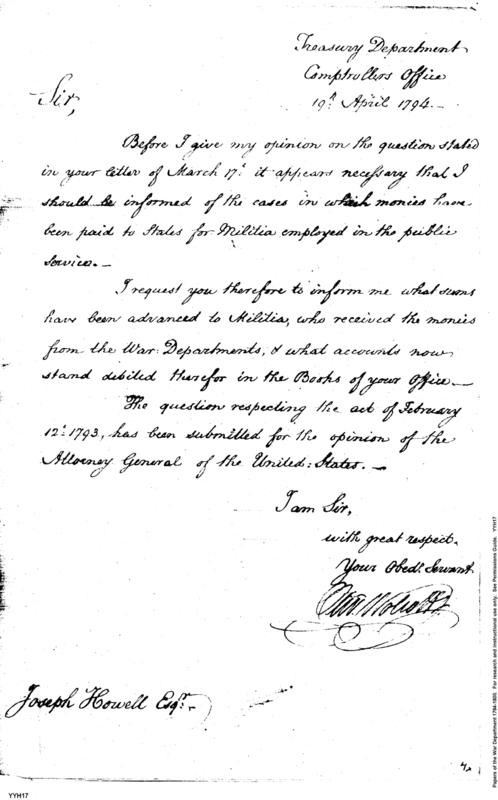 Treasury Department
Comptrollers Office
19th April 1794.—
Sir,
Before I give my opinion on the question stated
in your letter of March 17th it appears necessary that I
should be informed of the cases in which monies have
been paid to States for Militia employed in the public
service.—
I request you therefore to inform me what sums
have been advanced to Militia, who received the monies
from the War: Departments, & what accounts now
stand debited therefor in the Books of your Office.—
The question respecting the act of February
12th 1793, has been submitted for the opinion of the
Attorney General of the United: States.—
I am Sir,
with great respect.
Your Obedt. Servant
Olivr Wolcott
Joseph Howell Esqr.—
YYH17
Papers of the War Department 1784-1800. For research and instructional use only. See Permissions Guide. YYH17